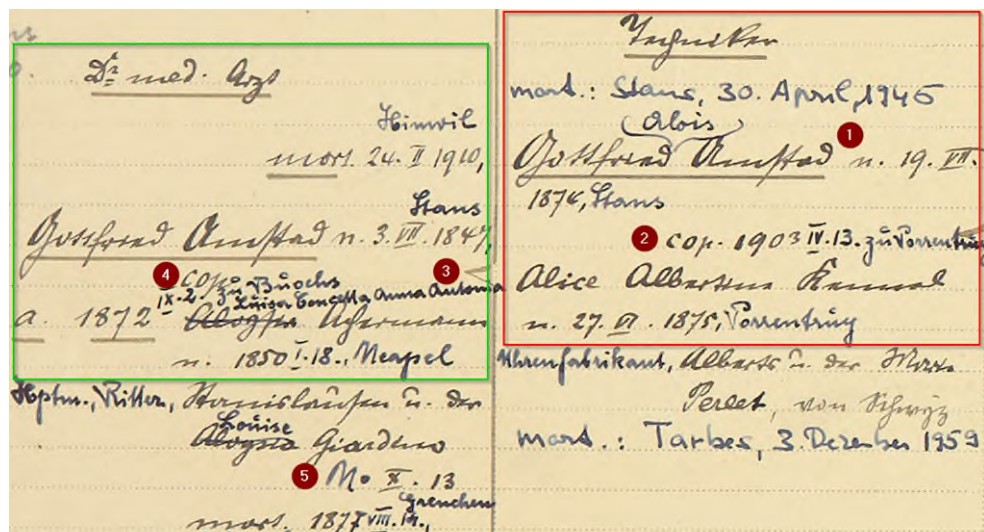 Dr med. Arzt
Hinwil
mort. 24. II 1910,
Stans
Gottfried Amstad n. 3. VII. 1847,
4 cop. zu Buochs 3
IX. 2. Luisa Concetta Anna Antonia
a. 1872 Aloysia Achermann
n. 1850 I. 18., Neapel
Hptm., Ritter, Stanislausen u. der
Louise
Aloysia Giardino
5 No X. 13
Grenchen
mort. 1877 VIII.
Techniker
mort.: Stans, 30. April, 1946
(Alois) 1
Gottfried Amstad n. 19. VII.
1874, Stans
2 cop. 1903 IV. 13. zu Porrentruy
Alice Albertine Kennel
n. 27. VI. 1875, Porrentruy
Uhrenfabrikant, Alberts u. der Marie
Perlet, von Schwyz
mort.: Tarbes, 3. Dezember 1959